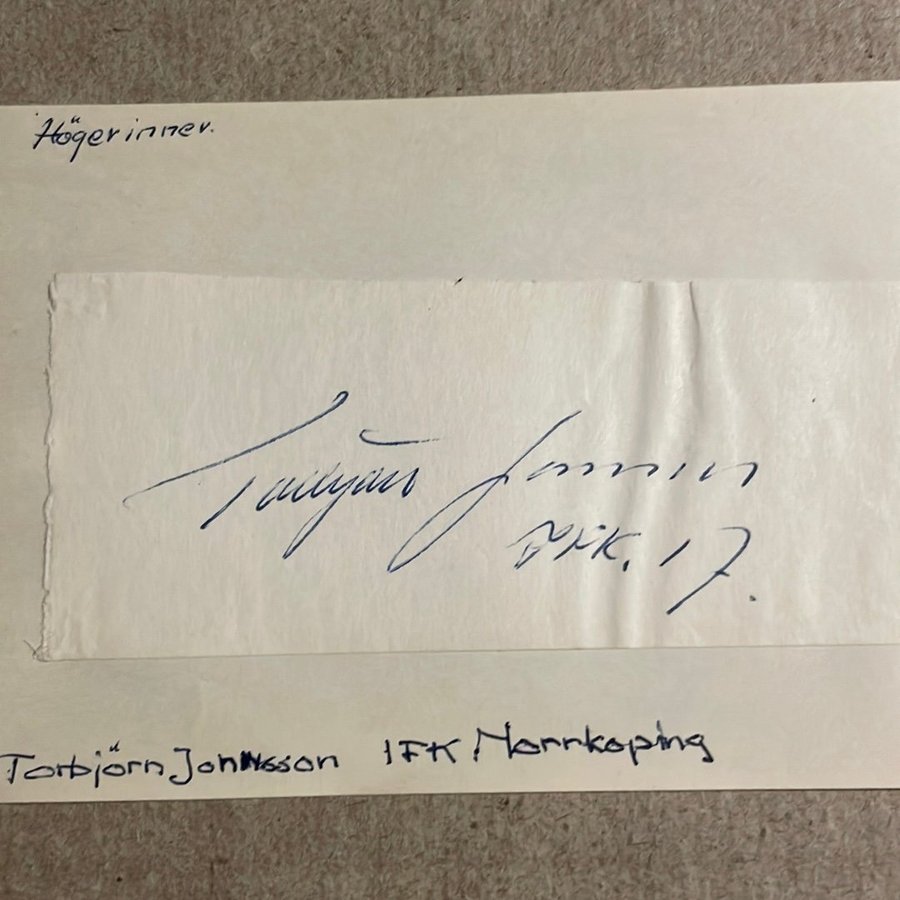 Högerinner.
Torbjörn Jonsson
17.
Torbjörn Jonsson IFK Norrkoping